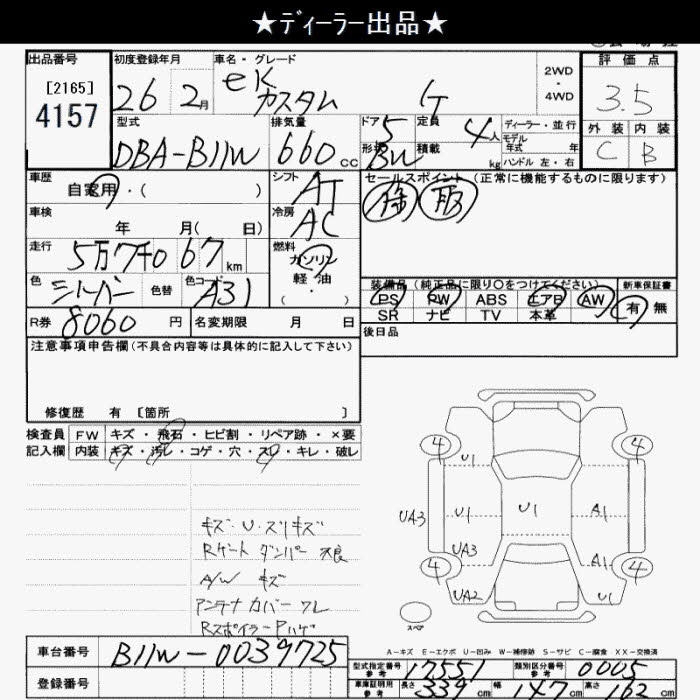 ★ディーラー出品★
出品番号 初度登録年月 車名・グレード 評価点
[2165] 4157 26 2月 eK カスタム G 2WD・4WD 3.5
外装 内装
C B
型式 排気量 ドア 定員 ディーラー・並行
DBA-B11W 660cc 5 4人 モデル年式 年
形状 積載 kg ハンドル 左・右
BW
車歴 シフト セールスポイント (正常に機能するものに限ります)
自家用・( ) AT 保 取
車検 冷房
年 月( 日) AC
走行 燃料
5万7千067km ガソリン
軽・油
( ・ )
色 色替 色コード 装備品 (純正品に限り○をつけてください) 新車保証書
シルバー A31 PS PW ABS エアB AW 有 無
SR ナビ TV 本革
R券 8060円 名変期限 月 日 後日品
注意事項申告欄(不具合内容等は具体的に記入して下さい)
修復歴 有 [箇所 ]
検査員 FW キズ・飛石・ヒビ割・リペア跡・×要
記入欄 内装 キズ・汚レ・コゲ・穴・スレ・キレ・破レ
4 4
U1
UA3 U1 U1 A1
UA3 A1
4 4
UA2 U1
スペア
キズ・U・スリキズ
Rゲートダンパー不良
A/W キズ
アンテナカバーワレ
RスポイラーPハゲ
A-キズ E-エクボ U-凹み W-補修跡 S-サビ C-腐食 XX-交換済
車台番号 B11W-0039725 型式指定番号 参考 17551 類別区分番号 参考 0005
登録番号 車庫証明用 参考 長さ 339cm 幅 147cm 高さ 162cm